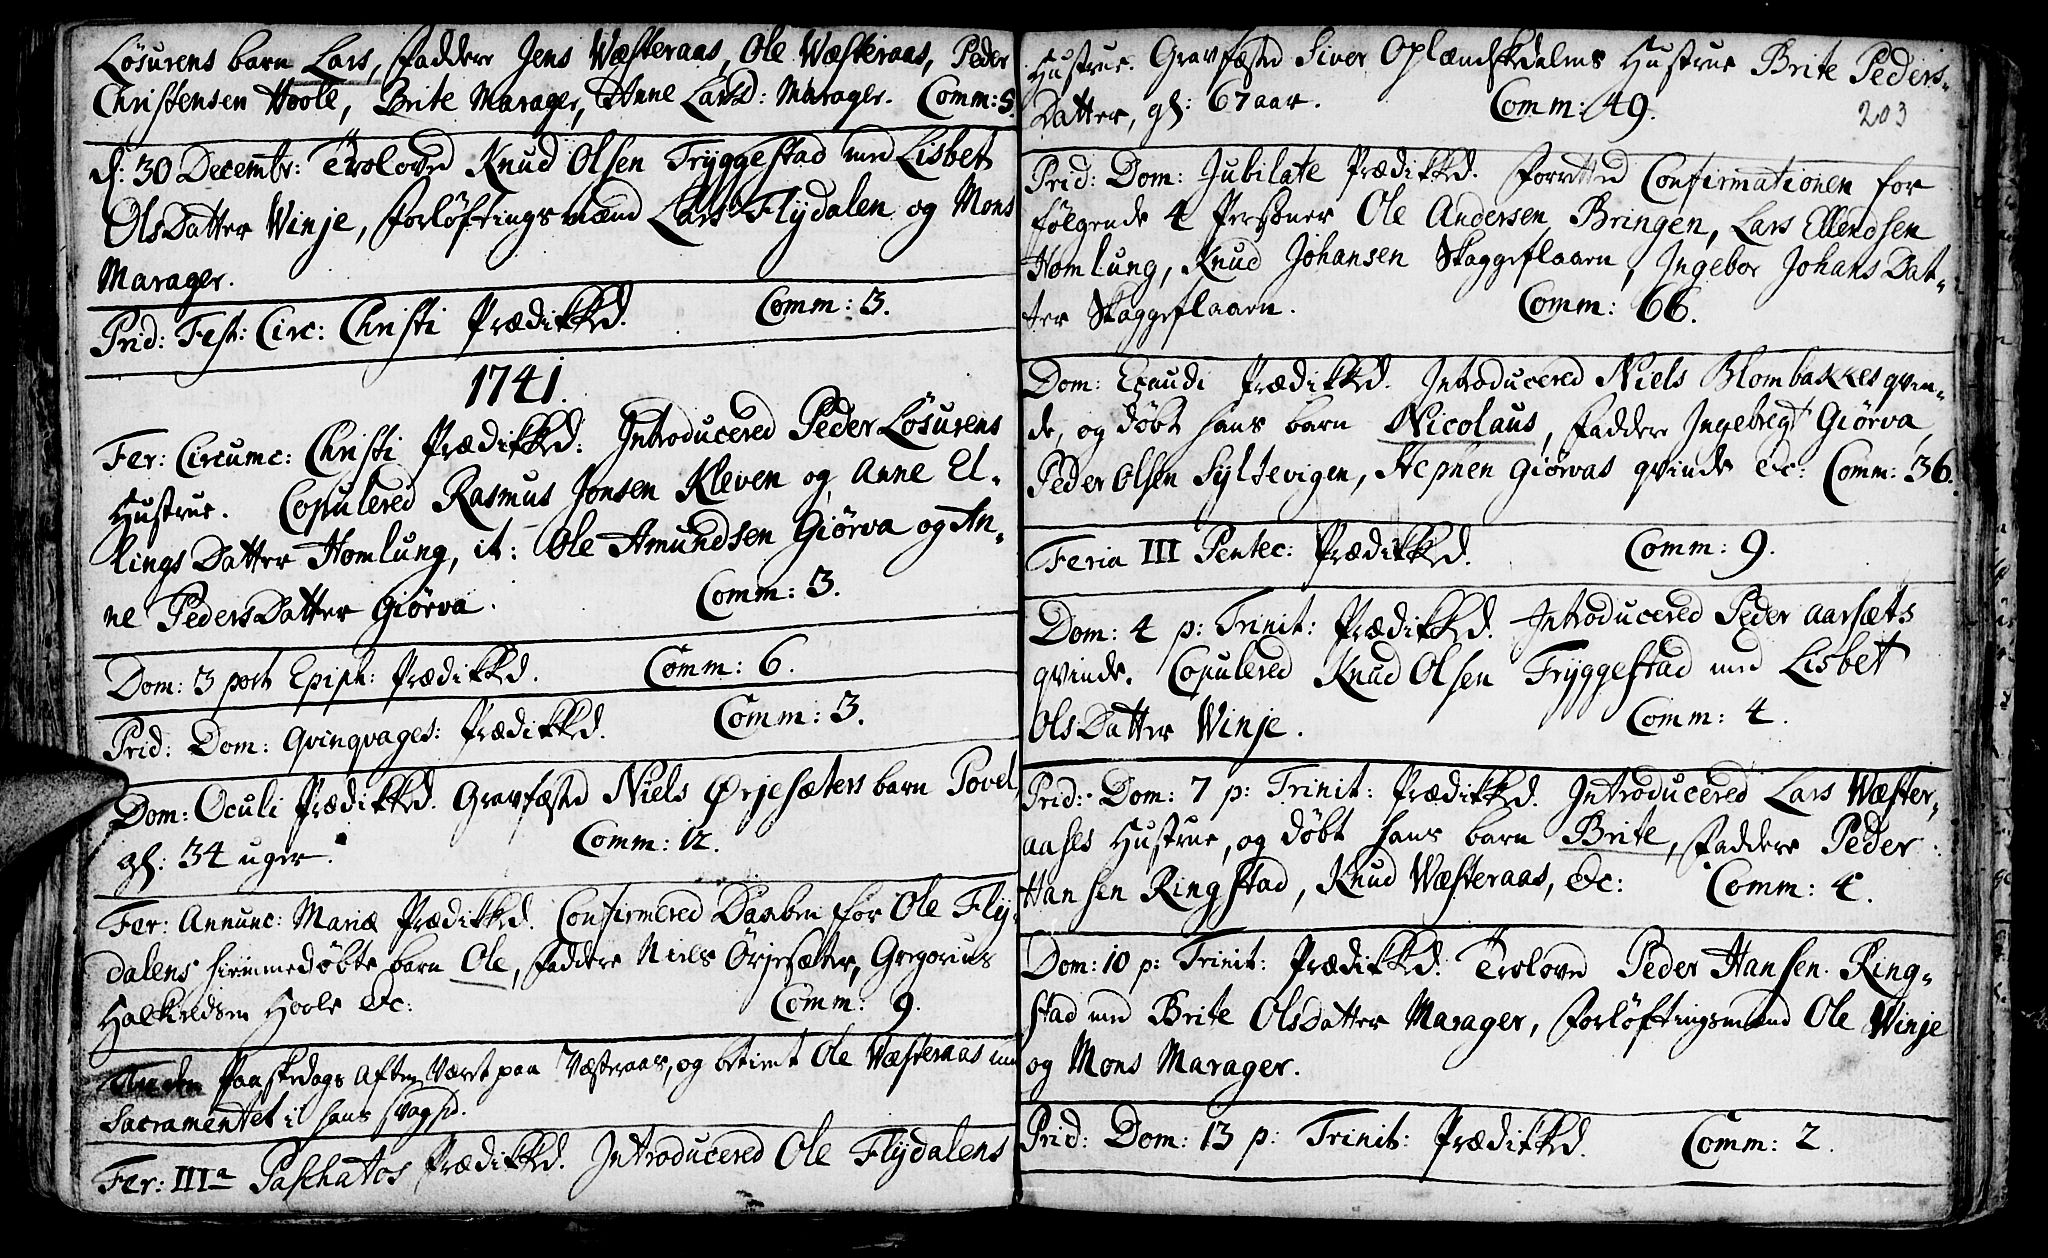 Løsurens barn Lars, Faddere Jens Wæsteraas, Ole Wæsteraas, Peder
Christensen Hoole, Brite Marager, Anne Larsd: Marager. Comm: 5.
d: 30 Decembr: Trolovd Knud Olsen Tryggestad med Lisbet
OlsDatter Winje, Forløftningsmænd Lars Flydalen og Mons
Marager.
Prid: Fest: Circ: Christi Prædikked. Comm: 3.
1741.
Fer: Circumc: Christi Prædikked. Introducered Peder Løsurens
Hustrue. Copulered Rasmus Jonsen Kleven og Anne El-
lings Datter Homlung, it: Ole Amundsen Giørva og An-
ne PedersDatter Giørva. Comm: 3.
Dom: 3 post Epiph: Prædikked. Comm: 6.
Prid: Dom: Qvinqvages: Prædikked. Comm: 3.
Dom: Oculi Prædikked. Gravfæsted Niels Ørjesæters barn Povel
gl: 34 uger. Comm: 12.
Fer: Annunc: Mariæ Prædikked. Confirmered Daaben for Ole Fly-
dalens hiemmedøbte barn Ole, Faddere Niels Ørjesæter, Gregorius
Halkieldsen Hoole &c: Comm: 9.
Paaskedags Aften Været paa Væsteraas, og betient Ole Wæsteraas med
Sacramentet i hans svaghed.
Fer: IIIa Paschatos Prædikked. Introducered Ole Flydalens
Hustrue. Gravfæsted Siver Oplændskedalens Hustrue Brite Peders-
Datter, gl: 67 aar. Comm: 49.
203
Prid: Dom: Jubilate Prædikked. Forretted Confirmationen for
følgende 4 Persohner Ole Andersen Bringen, Lars Ellendsen
Homlung, Knud Johansen Skaggeflaaen, Ingebor Johans Dat-
ter Skaggeflaaen. Comm: 66.
Dom: Exaudi Prædikked. Introducered Niels Blombakkes qvin-
de, og døbt hans barn Nicolaus, Faddere Ingebregt Giørva,
Peder Olsen Syltevigen, Stephen Giørvas qvinde &c: Comm: 36.
Feria III Pentec: Prædikked. Comm: 9.
Dom: 4 p: Trinit: Prædikked. Introducered Peder Aarsæts
qvinde. Copulered Knud Olsen Tryggestad med Lisbet
OlsDatter Winje. Comm: 4.
Prid: Dom: 7 p: Trinit: Prædikked. Introducered Lars Wæster-
aases Hustrue, og døbt hans barn Brite, Faddere Peder
Hansen Ringstad, Knud Wæsteraas, &c: Comm: 4.
Dom: 10 p: Trinit: Prædikked. Trolovd Peder Hansen Ring-
stad med Brite OlsDatter Marager, Forløftningsmænd Ole Winje
og Mons Marager.
Prid: Dom: 13 p: Trinit: Prædikked. Comm: 2.